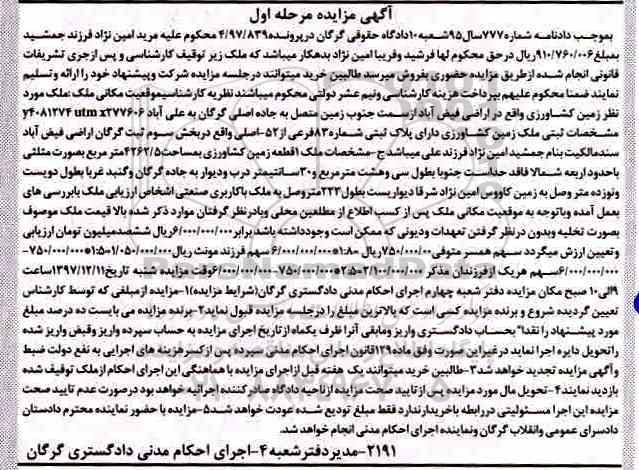 آگهی مزایده مرحله اول
بموجب دادنامه شماره ۷۷۷سال۹۵شعبه۱۰دادگاه حقوقی گرگان درپرونده۴/۹۷/۸۳۹ محکوم علیه مرید امین نژاد فرزند جمشید
بمبلغ۹۱۰/۷۶۰/۰۰۶ریال در حق محکوم لها فرشید وفریبا امین نژاد بدهکار میباشد که ملک زیر توقیف کارشناسی و پس ازجری تشریفات
قانونی انجام شده ازطریق مزایده حضوری بفروش میرسد طالبین خرید میتوانند درجلسه مزایده شرکت وپیشنهاد خود را ارائه وتسلیم
نمایند ضمنا محکوم علیهم بپرداخت هزینه کارشناسی ونیم عشر دولتی محکوم میباشند نظریه کارشناسیموقعیت مکانی ملک :ملک مورد
نظر زمین کشاورزی واقع در اراضی فیض آباد ازسمت جنوب زمین متصل به جاده اصلی گرگان به علی آباد utm x۲۷۷۶۰۶ y۴۰۸۱۲۷۴
مشخصات ثبتی ملک زمین کشاورزی دارای پلاک ثبتی شماره۸۳فرعی از۵۲-اصلی واقع دربخش سوم ثبت گرگان اراضی فیض آباد
سندمالکیت بنام جمشید امین نژاد فرزند علی میباشدج-مشخصات ملک ۱قطعه زمین کشاورزی بمساحت۴۲۶۲/۵متر مربع بصورت مثلثی
باحدود اربعه شمالا فاقد حداست جنوبا بطول سی وهشت مترمربع و۳۰سانتیمتر درب ودیوار به جاده گرگان وگنبد غربا بطول دویست
ونوزده متر وصل به زمین کاووس امین نژاد شرقا دیواریست بطول۲۲۲متروصل به ملک باکاربری صنعتی اشخاص ارزیابی ملک بابررسی های
بعمل آمده وباتوجه به موقعیت مکانی ملک پس از کسب اطلاع از مطلعین محلی وبادرنظر گرفتان موارد ذکر شده بالا قیمت ملک موصوف
بصورت تخلیه وبدون درنظر گرفتن تعهدات ودیونی که ممکن است وجودداشته باشد برابر۶/۰۰۰/۰۰۰/۰۰۰ریال ششصدمیلیون تومان ارزیابی
وتعیین ارزش میگردد سهم همسر متوفی۷۵۰/۰۰۰/۰۰ریال ۱:۸۰=۶/۰۰۰/۰۰۰/۰۰۰ سهم فرزند مونث ریال۱/۰۵۰/۰۰۰/۰۰۰=۱:۵=۷۵۰/۰۰۰/۰۰۰-
۶/۰۰۰/۰۰۰/۰۰۰سهم هریک ازفرزندان مذکر ۲/۱۰۰/۰۰۰/۰۰۰=۲:۵=۷۵۰/۰۰۰/۰۰۰-۶/۰۰۰/۰۰۰/۰۰۰وقت مزایده شنبه تاریخ۱۳۹۷/۱۲/۱۱ساعت
۹الی۱۰ صبح مکان مزایده دفتر شعبه چهارم اجرای احکام مدنی دادگستری گرگان(شرایط مزایده)۱-مزایده ازمبلغی که توسط کارشناس
تعیین گردیده شروع و برنده مزایده کسی است که بالاترین مبلغ را درجلسه مزایده قبول نماید۲-برنده مزایده می بایست ده درصد مبلغ
مورد پیشنهاد را نقدا" بحساب دادگستری واریز ومابقی آنرا ظرف یکماه از تاریخ اجرای مزایده به حساب سپرده واریز وقبض واریز شده
راتحویل دایره اجرا نماید درغیراین صورت وفق ماده۱۲۹قانون اجرای احکام مدنی سپرده پس ازکسرهزینه های اجرایی به نفع دولت ضبط
وآگهی مزایده تجدید خواهد شد۳-طالبین خرید میتوانند یک هفته قبل ازاجرای مزایده با هماهنگی این اجرای احکام ازملک توقیف شده
بازدید نمایند۴-تحویل مال مورد مزایده پس ازتایید صحت مزایده ازناحیه دادگاه صادر کننده اجرائیه خواهد بود درصورت عدم تایید صحت
مزایده این اجرا مسئولیتی دررابطه باخریدارندارد فقط مبلغ تودیع شده عودت خواهد شد۵-مزایده با حضور نماینده محترم دادستان
دادسرای عمومی وانقلاب گرگان ونماینده اجرای احکام مدنی انجام خواهد شد.
۲۱۹۱-مدیردفترشعبه۴-اجرای احکام مدنی دادگستری گرگان